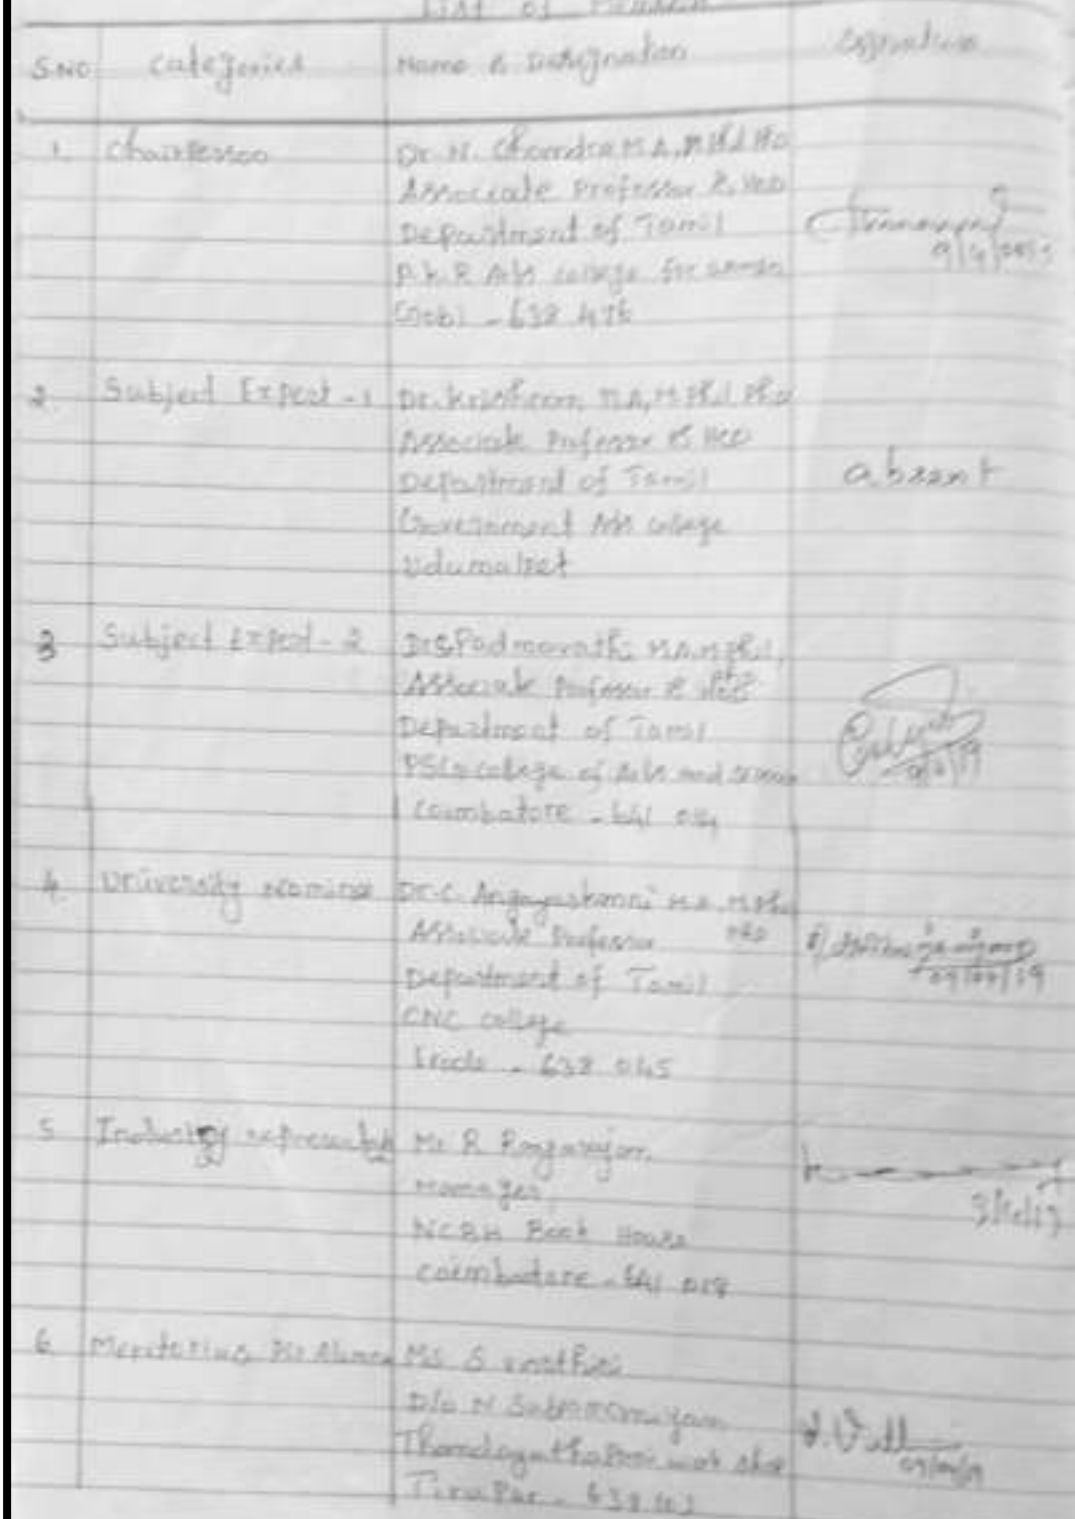 List of Members
S.NO Categories Name & Designation Signature
1. Chairperson Dr. N. Chandra M.A., M.Phil PhD
Associate Professor & HOD
Department of Tamil
P.K.R Arts college for women
Gobi - 638 476
9/4/2019
2. Subject Expert - 1 Dr. Krishnan, M.A, M.Phil Ph.D
Associate Professor & HOD
Department of Tamil
absent
Government Arts college
Udumalpet
3 Subject Expert - 2 Dr.S.Padmavathi M.A.M.Phil,
Associate Professor & HOD
Department of Tamil
PSG college of Arts and science
9/4/19
Coimbatore - 641 014
4. University Nominee Dr.C. Angayarkanni M.A. M.Phil
Associate Professor PhD
09/04/19
Department of Tamil
CNC college
Erode - 638 045
5 Industry Mr R Rangarajan,
Manager,
NCBH Book House
Coimbatore - 641 018
6. Meritorius Ms S
D/o N Subramaniyam
09/04/19
Tirupur - 638 103